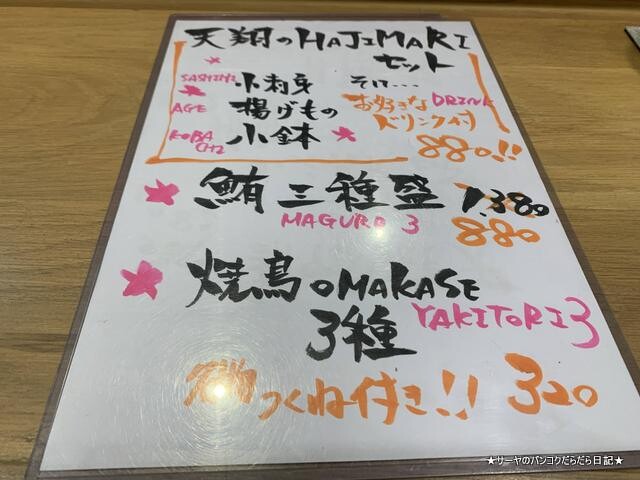 天翔のHAJIMARI
セット
SASHIMI 小刺身 そして...
AGE 揚げもの お好きなDRINK
KOBACHI 小鉢 ドリンク付
880!!
鮪三種盛 1,380
MAGURO 3 880
焼鳥OMAKASE
3種 YAKITORI 3
つくね付き!! 320
★サーヤのバンコクだらだら日記★